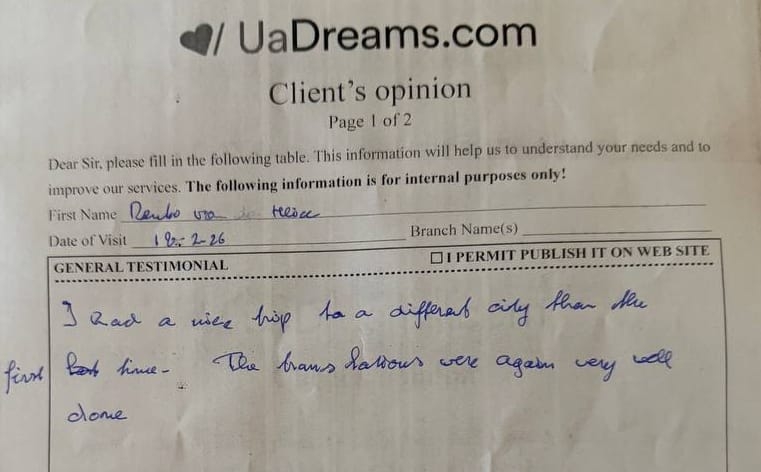 UaDreams.com
Client's opinion
Page 1 of 2
Dear Sir, please fill in the following table. This information will help us to understand your needs and to
improve our services. The following information is for internal purposes only!
First Name
Date of Visit 18-2-26 Branch Name(s)
GENERAL TESTIMONIAL ☐ I PERMIT PUBLISH IT ON WEB SITE
I had a nice trip to a different city than the
first time- The translations were again very well
done